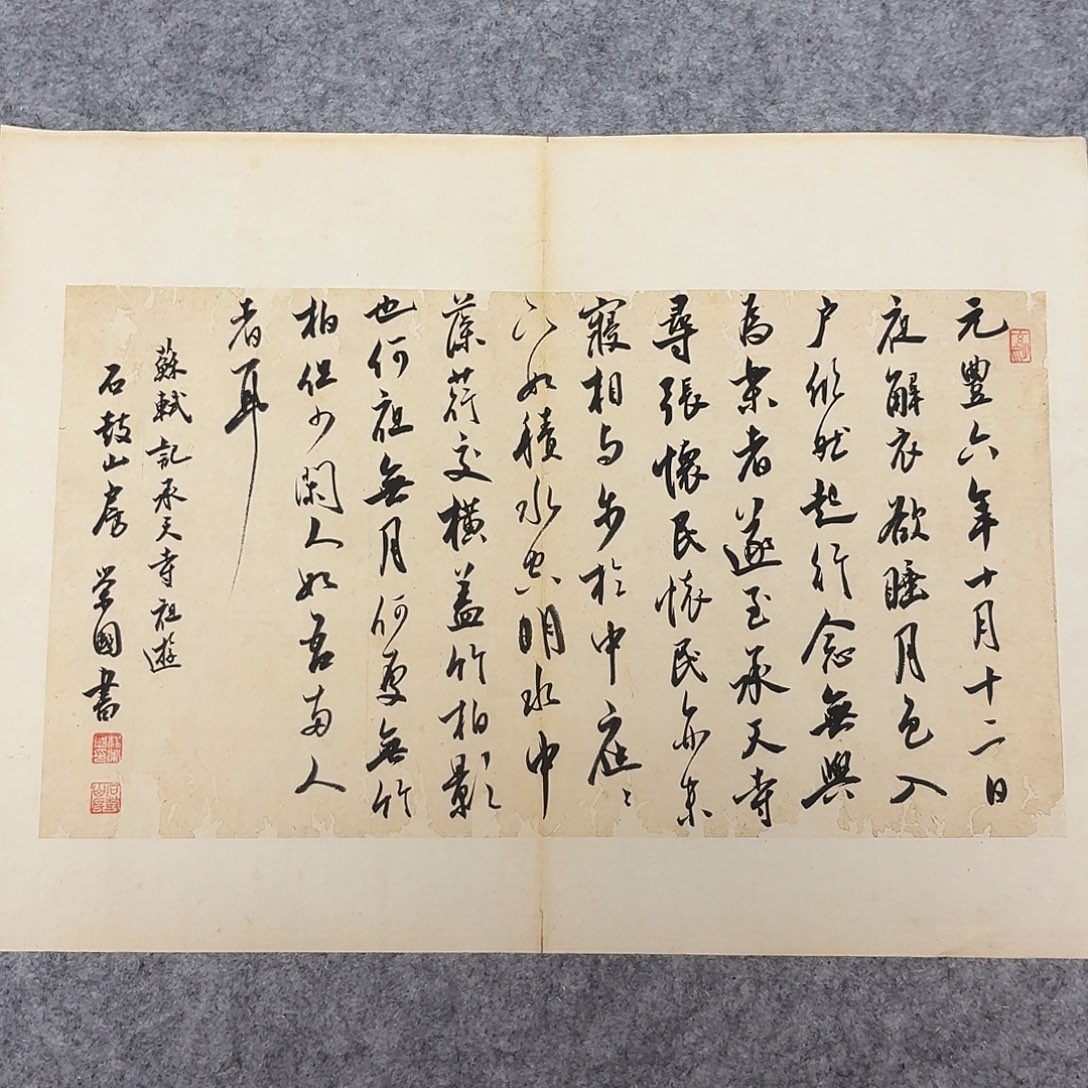 元豐六年十月十二日
夜解衣欲睡月色入
户欣然起行念無與
為樂者遂至承天寺
尋張懷民懷民亦未
寢相与步於中庭〻
下如積水空明水中
藻荇交橫蓋竹柏影
也何夜無月何處無竹
柏但少閑人如吾兩人
者耳
蘇軾記承天寺夜遊
石鼓山房 榮國書